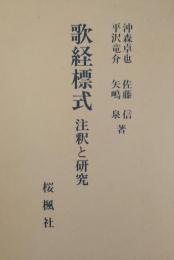 沖森卓也 佐藤 信
平沢竜介 矢嶋 泉 著
歌経標式
注釈と研究
桜楓社